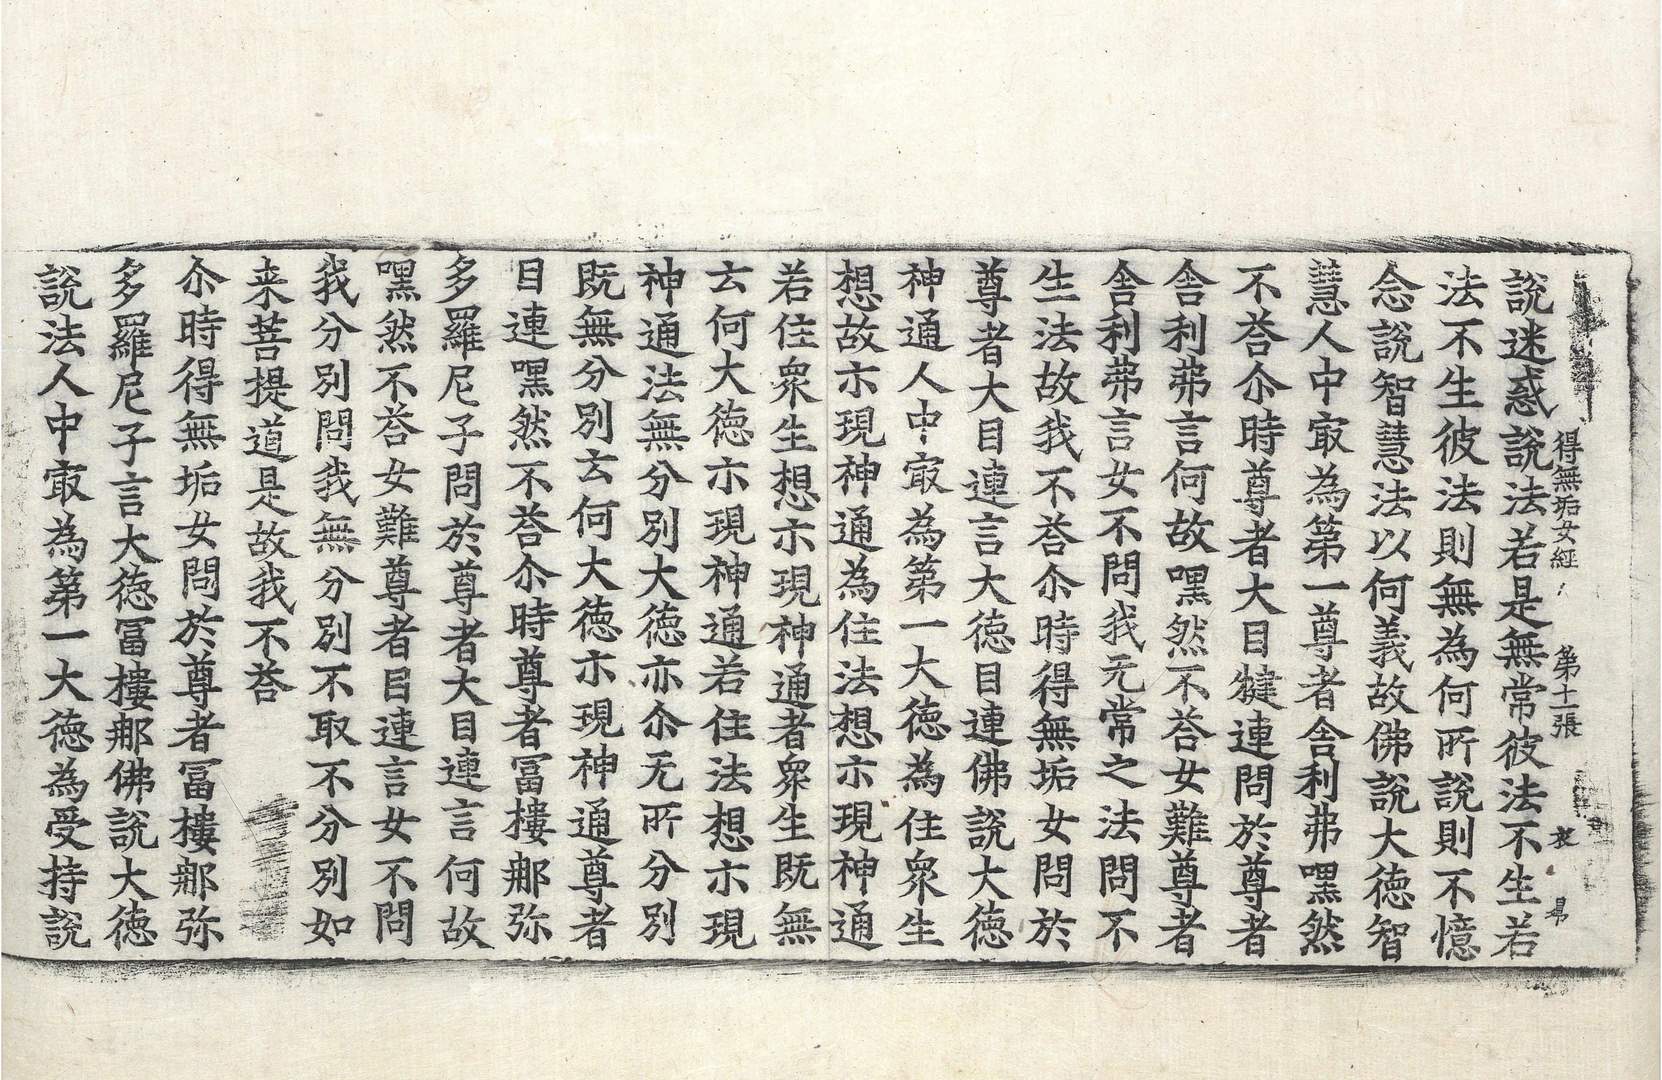 得無垢女經 第十二張 㦲 昜
說迷惑說法若是無常彼法不生若
法不生彼法則無為何所說則不憶
念說智慧法以何義故佛說大德智
慧人中㝡為第一尊者舍利弗嘿然
不荅尒時尊者大目揵連問於尊者
舍利弗言何故嘿然不荅女難尊者
舍利弗言女不問我无常之法問不
生法故我不荅尒時得無垢女問於
尊者大目連言大德目連佛說大德
神通人中㝡為第一大德為住衆生
想故示現神通為住法想示現神通
若住衆生想示現神通者衆生既無
云何大德示現神通若住法想示現
神通法無分別大德亦尒无所分別
既無分別云何大德示現神通尊者
目連嘿然不荅尒時尊者冨樓那弥
多羅尼子問於尊者大目連言何故
嘿然不荅女難尊者目連言女不問
我分別問我無分別不取不分別如
来菩提道是故我不荅
尒時得無垢女問於尊者冨樓那弥
多羅尼子言大德冨樓那佛說大德
說法人中㝡為第一大德為受持說